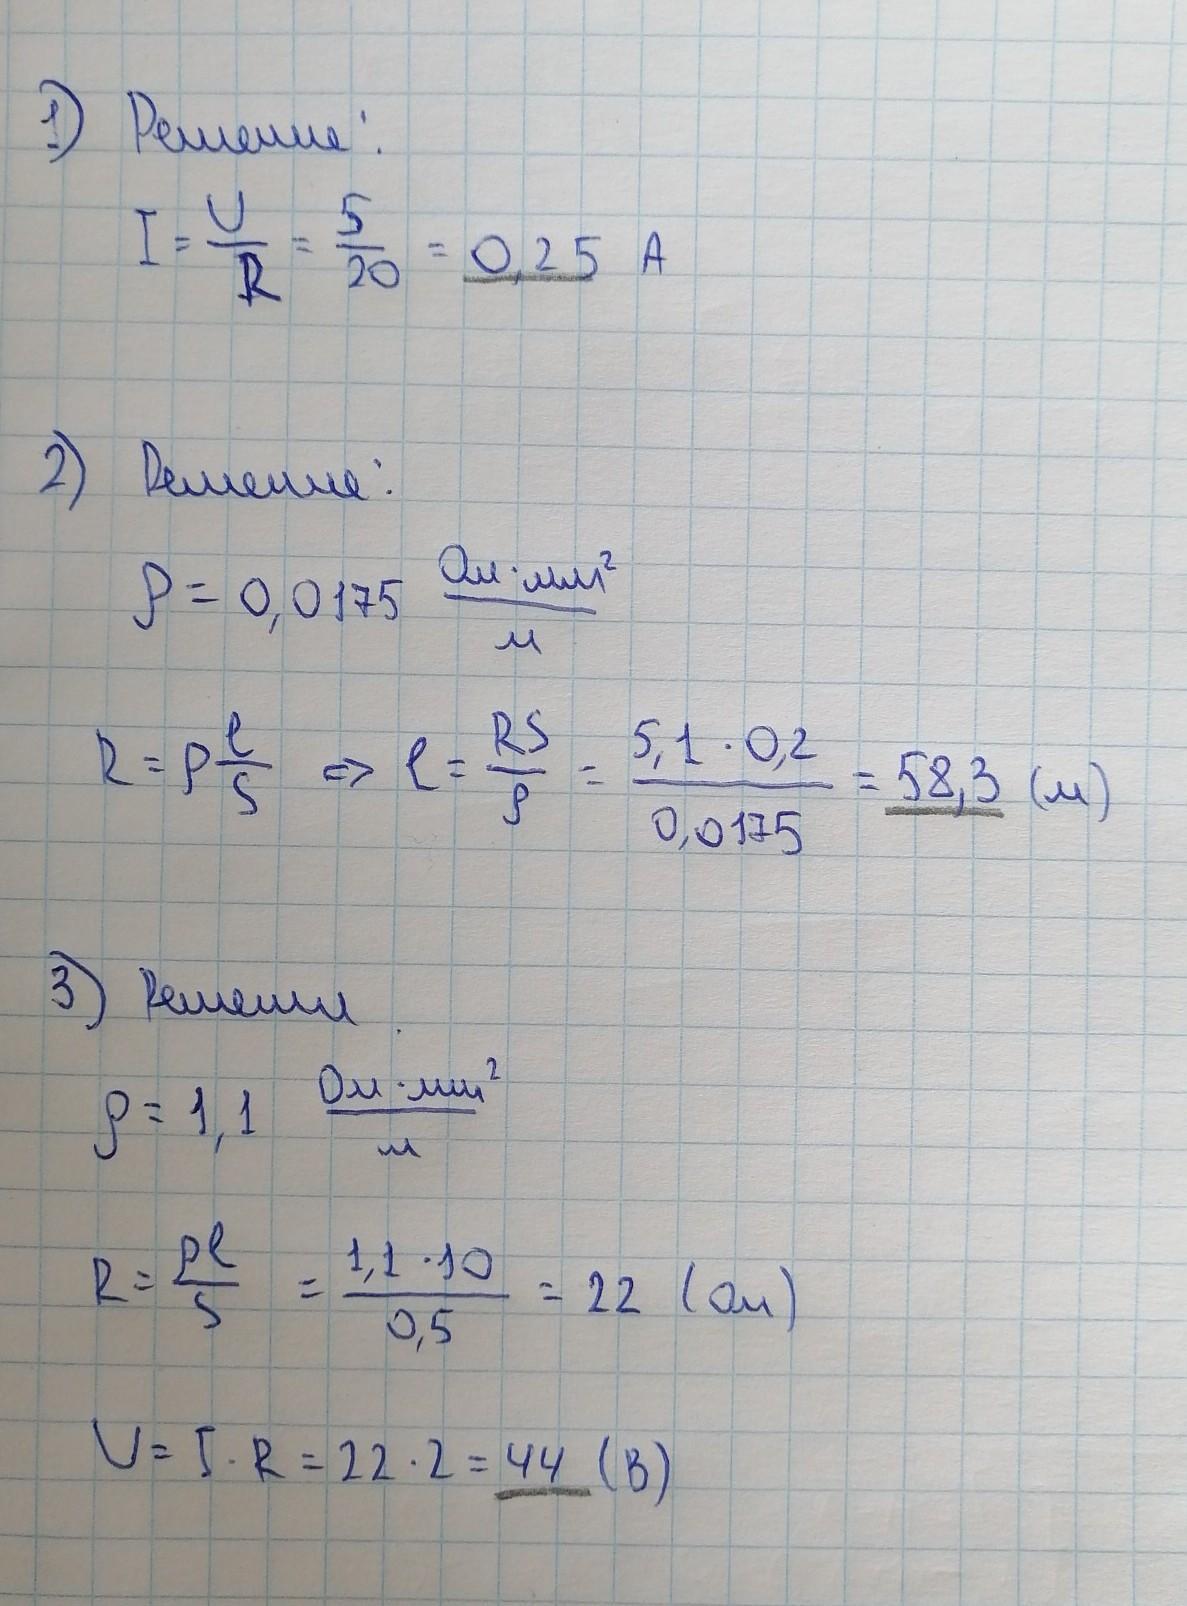 1) Решение:
I = U/R = 5/20 = 0,25 А
2) Решение:
ρ = 0,0175 Ом·мм²/м
R = ρ l/S ⇒ l = RS/ρ = 5,1 · 0,2/0,0175 = 58,3 (м)
3) Решение
ρ = 1,1 Ом·мм²/м
R = ρl/S = 1,1 · 10/0,5 = 22 (Ом)
U = I · R = 22 · 2 = 44 (В)